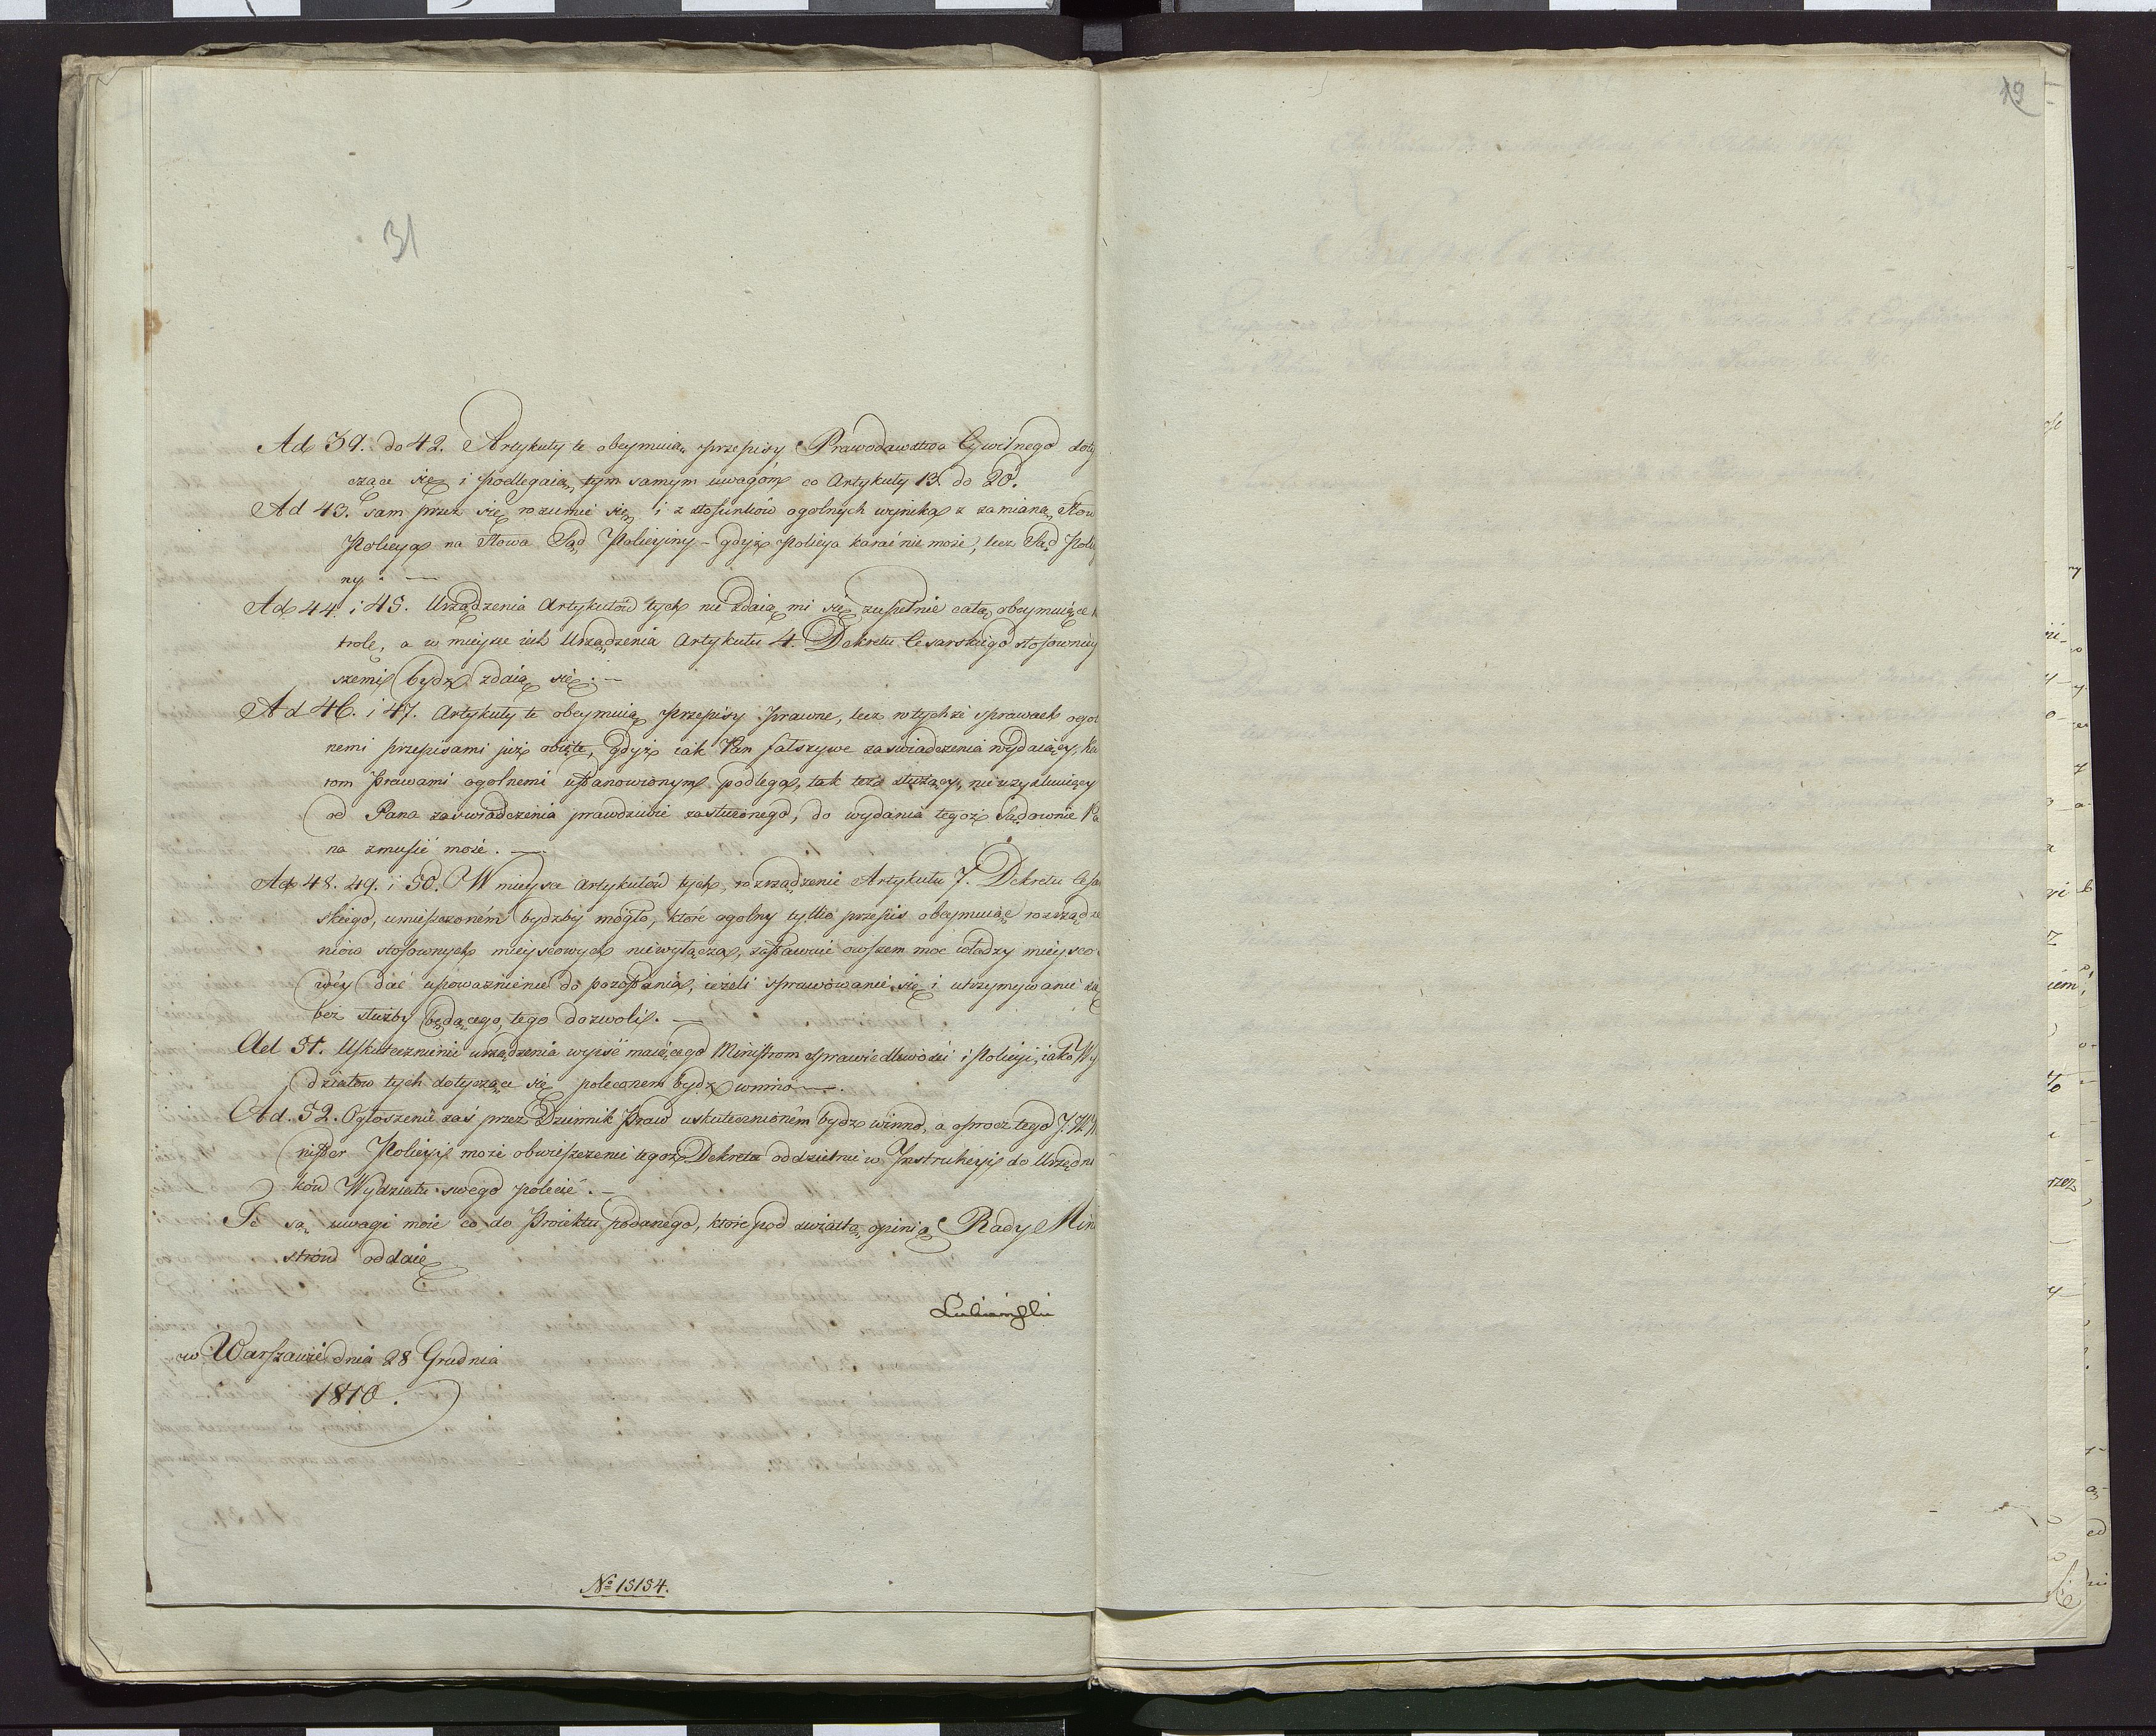 19
31
Ad 39. do 42. Artykuły te obeymuią przepisy Prawodawstwa Cywilnego doty
czące się i podlegaią tym samym uwagóm co Artykuły 13. do 20.
Ad 43. sam przez się rozumie się i z stosunków ogolnych wynika z zamianą słow
Policya na słowa Sąd Policyiny – gdyż Policya karać nie może, lecz Sąd Policy
ny. —
Ad 44 i 45. Urządzenia Artykułów tych nie zdaią mi się zupełnie całą obeymuiące
trolę, a w mieysce ich Urządzenia Artykułu 4. Dekretu Cesarskiego stosowniey
szemi bydź zdaią się. —
Ad 46. i 47. Artykuły te obeymuią przepisy prawne, lecz w tychże sprawach ogol
nemi przepisami już obięte, gdyż iak Pan fałszywe zaświadczenia wydaiący, Ka
rom Prawami ogolnemi ustanowionym podlega, tak też służący, nieuzyskuiący
od Pana zaświadczenia prawdziwie zasłużonego, do wydania tegoż Sądownie Pa
na zmusić może. —
Ad 48. 49. i 50. W mieysce Artykułów tych, rozrządzenie Artykułu 7. Dekretu Cesar
skiego, umieszczoném bydźby mogło, które ogolny tylko przepis obeymuiąc rozrządze
niow stosownych mieyscowych niewyłącza, zostawuie owszem moc władzy mieysco
wéy dać upoważnienie do pozostania, ieżeli sprawowanie się i utrzymywanie się
bez służby będącego, tego dozwoli. —
Ad 51. Uskutecznienie urządzenia wyiść maiącego Ministrom Sprawiedliwości i Policyi, iako Wy
działow tych dotyczące się poleconem bydź winno —.
Ad. 52. Ogłoszenie zaś przez Dziennik Praw uskutecznioném bydź winno, a oprocz tego J. W. Mi
nister Policyi może obwieszczenie tegoż Dekretu oddzielnie w Instrukcyi do Urzędni
ków Wydziału swego polecić. —
Te są uwagi moie co do Proiektu podanego, które pod światłą opinią Rady Mini
strów oddaię
Lubieński
w Warszawie dnia 28 Grudnia
1810.
No 15154.